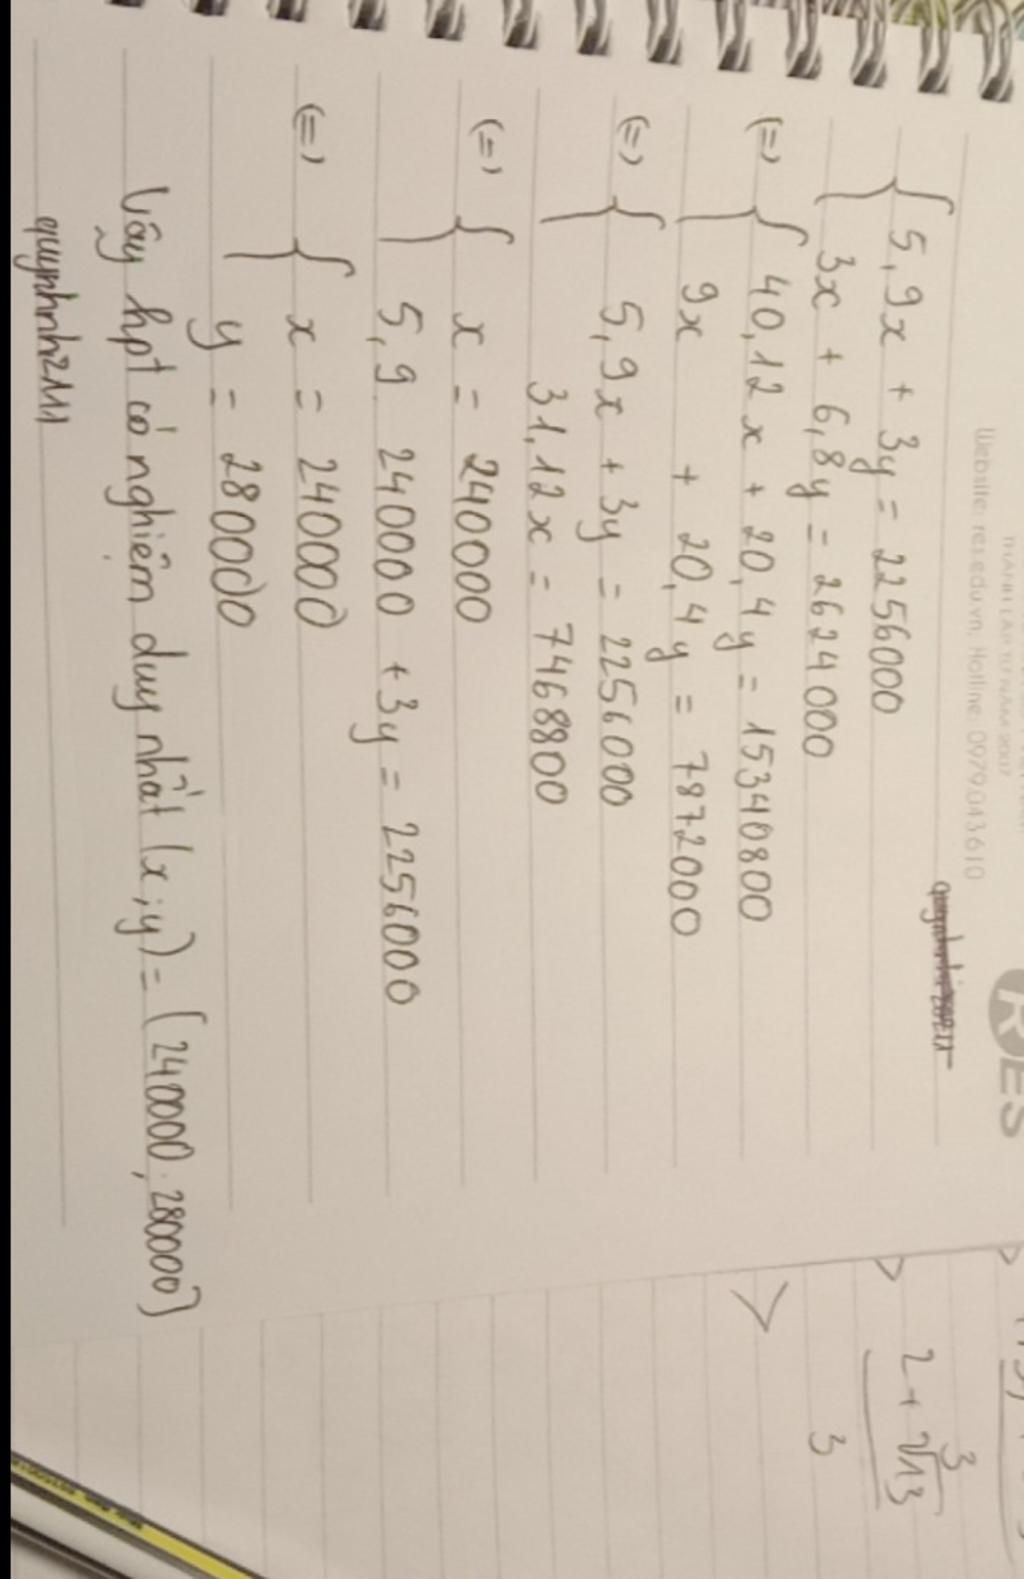 RES
THÀNH LẬP TỪ NĂM 2007
Website: res.edu.vn, Hotline: 0979.043.610
{ 5,9x + 3y = 2256000
3x + 6,8y = 2624000
(=) { 40,12x + 20,4y = 15340800
9x + 20,4y = 7872000
(=) { 5,9x + 3y = 2256000
31,12x = 7468800
(=) { x = 240000
5,9 . 240000 + 3y = 2256000
(=) { x = 240000
y = 280000
Vậy hpt có nghiệm duy nhất (x;y) = (240000; 280000)
quynhnhi2M1
2 + ³√13
3